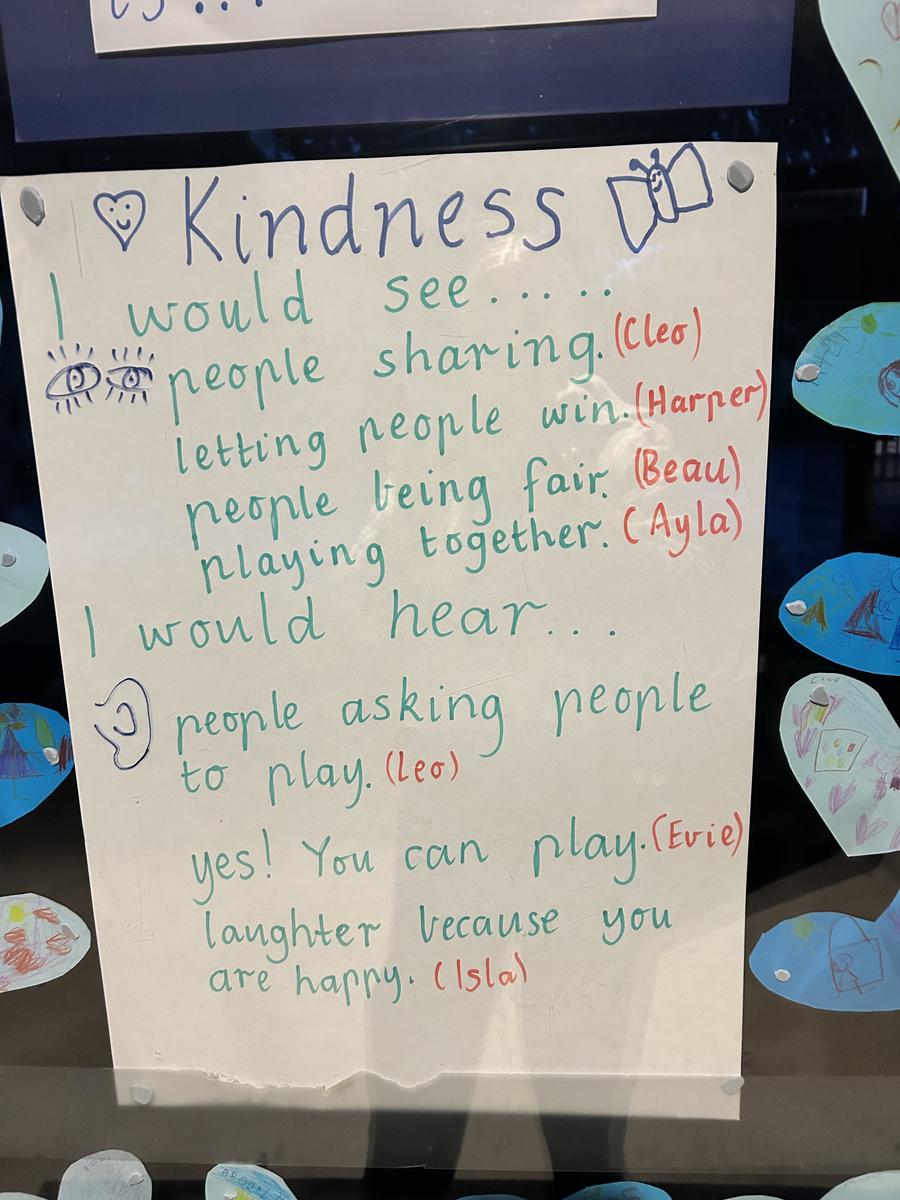 is...
Kindness
I would see.....
people sharing. (Cleo)
letting people win. (Harper)
people being fair. (Beau)
playing together. (Ayla)
I would hear...
people asking people
to play. (Leo)
yes! You can play. (Evie)
laughter because you
are happy. (Isla)